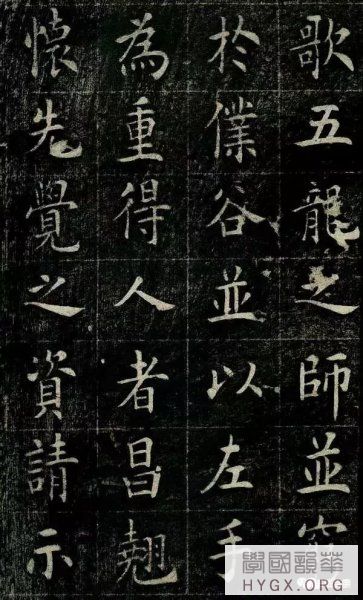 歌五龍之師並
於僕谷並以左手
為重得人者昌翹
懷先覺之資請示
學國韻華
HYGX.ORG